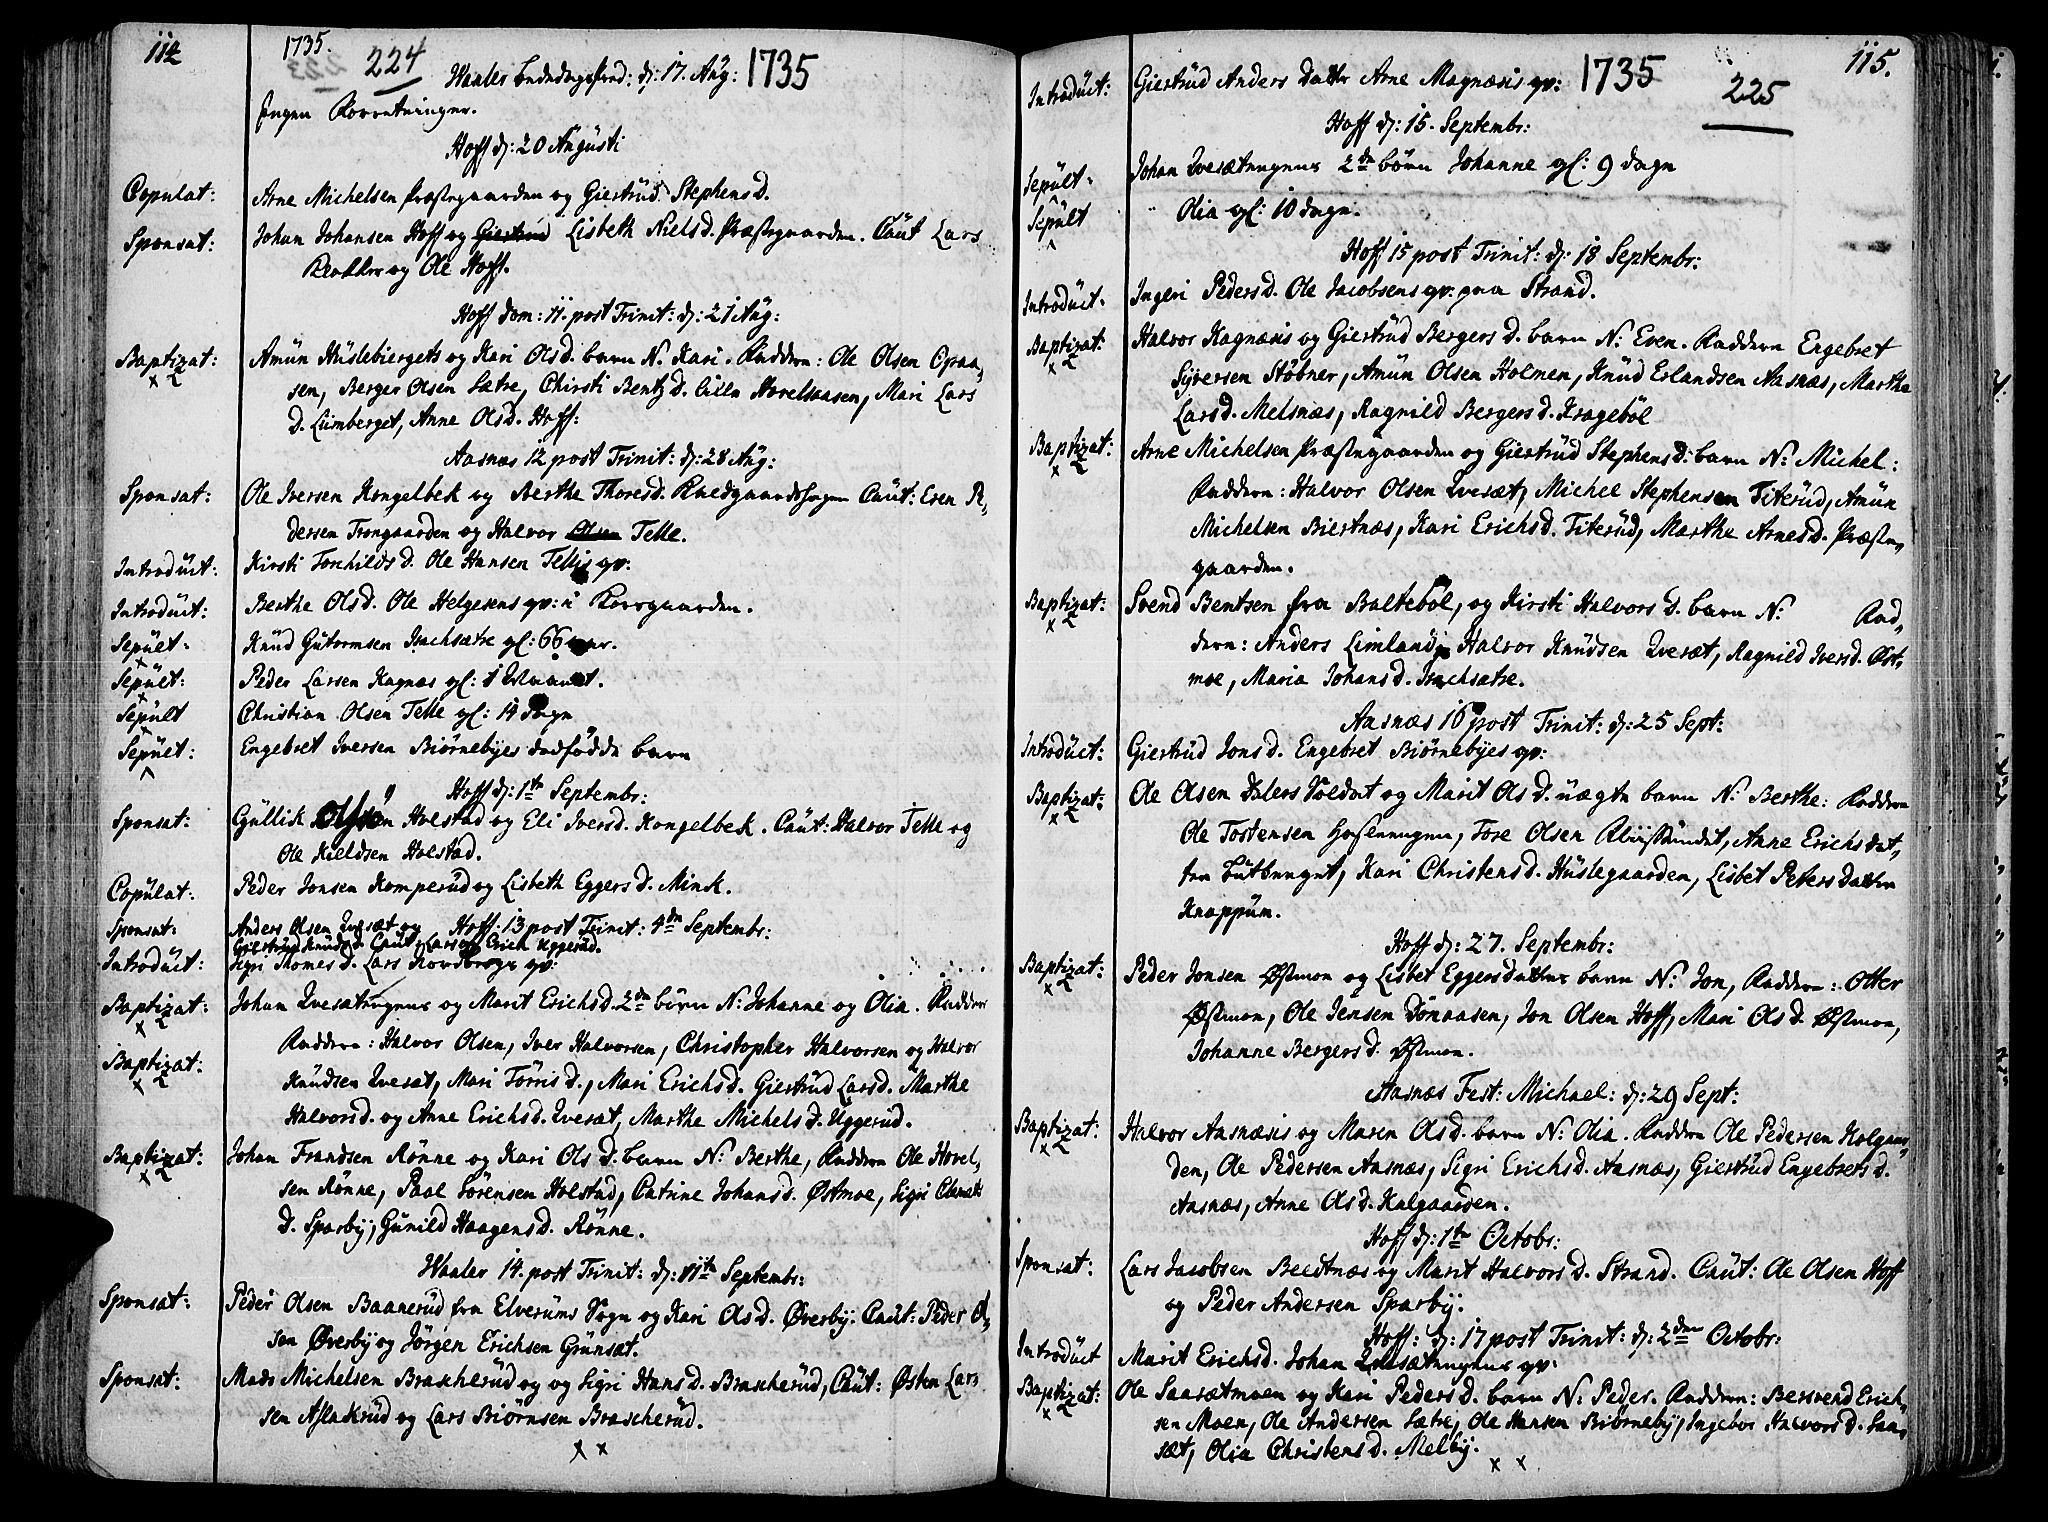 114
1735.
224
Waaler d: 17. Aug: 1735
Ingen Forretninger.
Hoff d: 20 Augusti
Copulat: Arne Michelsen Præstegaarden og Giertrud Stephens D.
Sponsat: Johan Johansen Hoff og Giertrud Lisbeth Niels D. Præstegaarden. Caut Lars
og Ole Hoff.
Hoff Dom: 11. post Trinit: d: 21 Aug:
Baptizat: Amun Huslebiergets og Kari Ols D. barn N. Kari. Fadderne: Ole Olsen Opaa,
sen, Berger Olsen Sætre, Chirsti Bentz D. Mari Lars
D. Lumberget, Anne Ols D. Hoff:
Aasnæs 12 post Trinit: d: 28 Aug:
Sponsat: Ole Iversen Kongelbek og Berthe Thores D. Caut: Even Pe,
dersen Trongaarden og Halvor Olsen Telle.
Introduct: Kirsti Torchilds D. Ole Hansen Tellis qv:
Introduct: Berthe Ols D. Ole Helgesens qv: i Korsgaarden.
Sepult: Knud Gutormsen Irachsætre gl: 66 aar.
Sepult: Peder Larsen Kagnæs gl: 1 Maanet.
Sepult Christian Olsen Telle gl: 14 dage
Sepult: Engebret Iversen Biørnebyes dødfødde barn
Hoff d: 1te Septembr:
Sponsat: Gullik Olsen Holstad og Eli Ivers D. Kongelbek. Caut: Halvor Telle og
Ole Kieldsen Holstad.
Copulat: Peder Jonsen Komperud og Lisbeth Eggers D. Mink.
Sponsat: Anders Olsen Qvesæt og Hoff: 13 post Trinit: 4de Septembr:
Giertrud Knuds D. Caut: Lars og Erich Uggerud.
Introduct: Sigri Thomes D. Lars qv:
Baptizat: Johan Qvesætengens og Marit Erichs D. 2de børn N: Johanne og Olia. Fadder
Baptizat: Fadderne: Halvor Olsen, Iver Halvorsen, Christopher Halvorsen og Halvor
Knudsen Qvesæt, Mari Torris D., Mari Erichs D. Giertrud Lars D. Marthe
Halvors D. og Anne Erichs D. Qvesæt, Marthe Michels D. Uggerud.
Baptizat: Johan Frandsen Rønne og Kari Ols D. barn N: Berthe, Fadderne Ole Hovel,
sen Rønne, Paal Sørensen Holstad, Catrine Johans D. Østmoe, Sigri Clemets
D. Sparby, Gunild Haagens D. Rønne.
Waaler 14. post Trinit: d: 11te Septembr:
Sponsat: Peder Olsen Baanerud fra Elverums Sogn og Kari Ols D. Øverby: Caut: Peder Ol,
sen Øverby og Jørgen Erichsen Grunsæt.
Sponsat: Mads Michelsen Brascherud og og Sigri Hans D. Brascherud, Caut: Østen Lars
sen Aslakrud og Lars Biørnsen Brascherud.
x x
115.
Introduct: Giertrud Anders Datter Arne Magnæsis qv: 1735
225
Hoff d: 15. Septembr:
Sepult: Johan Qvesætengens 2de børn Johanne gl: 9 dage
Sepult Olia gl: 10 dage.
Hoff 15 post Trinit: d: 18 Septembr:
Introduct: Ingeri Peders D. Ole Jacobsens qv: paa Strand.
Baptizat: Halvor Kagnæsis og Giertrud Bergers D. barn N: Even. Fadderne Engebret
Syversen Støbner, Amun Olsen Holmen, Knud Erlandsen Aasnæs, Marthe
Lars D. Melsnæs, Ragnild Bergers D. Kragebøl
Baptizat: Arne Michelsen Præstegaarden og Giertrud Stephens D: barn N: Michel:
Fadderne: Halvor Olsen Qvesæt, Michel Stephensen Titerud, Amun
Michelsen Biertnæs, Kari Erichs D. Titerud, Marthe Arnes D. Præste,
gaarden.
Baptizat: Svend Bentsen fra Baltebøl, og Kirsti Halvors D. barn N: Fad,
derne: Anders Limland, Halvor Knudsen Qvesæt, Ragnild Ivers D. Øst,
moe, Maria Johans D. Irachsætre.
Aasnæs 16 post Trinit: d: 25 Sept:
Introduct: Giertrud Jons D. Engebret Biørnebyes qv:
Baptizat: Ole Olsen Dalers Soldat og Marit Ols D. uægte barn N: Berthe: Fadderne
Ole Tostensen Tore Olsen Anne Erichsdat,
ter Kari Christens D. Huslegaarden, Lisbet Peters Datter
Knappum.
Hoff d: 27. Septembr:
Baptizat: Peder Jonsen Østmoe og Lisbet Eggersdatters barn N: Jon, Fadderne: Otter
Østmoe, Ole Jensen Dønaasen, Jon Olsen Hoff, Mari Ols D. Østmoe,
Johanne Bergers D. Østmoe.
Aasnæs Fest: Michael: d: 29 Sept:
Baptizat: Halvor Aasnæsis og Maren Ols D. barn N: Olia. Fadderne Ole Pedersen Kolgaar
den, Ole Pedersen Aasnæs, Sigri Erichs D. Aasnæs, Giertrud Engebrets D.
Aasnæs, Anne Ols D. Kalgaarden.
Hoff d: 1te Octobr:
Sponsat: Lars Jacobsen Beedtnæs og Marit Halvors D. Strand. Caut: Ole Olsen Hoff
og Peder Andersen Sparby.
Hoff: d: 17 post Trinit: d: 2den Octobr:
Introduct Marit Erichs D. Johan Qvesætengens qv:
Baptizat: Ole Saarætmoen og Kari Peders D. barn N: Peder. Fadderne: Bersvend Erich,
sen Moen, Ole Andersen Sætre, Ole Hansen Biørneby, Ingebor Halvors D. Saa,
ræt, Olia Christens D. Melby.
x x